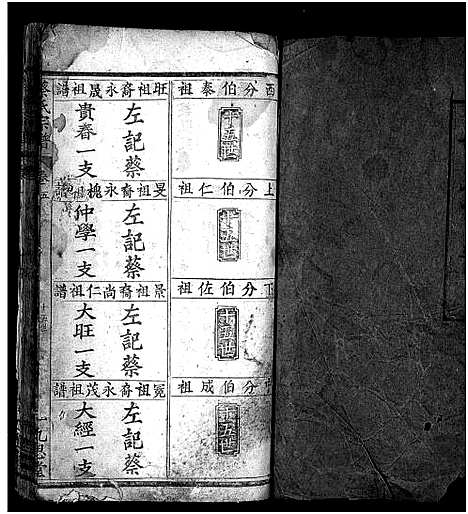 酉分伯泰祖
十五世
旺祖裔永晟祖譜
左記蔡
貴春一支
上分伯仁祖
十五世
旻祖裔永槐祖
左記蔡
仲學一支
下分伯佐祖
十五世
景祖裔尚仁祖譜
左記蔡
大旺一支
分伯成祖
十五世
冕祖裔永茂祖譜
左記蔡
大經一支
蔡氏宗譜